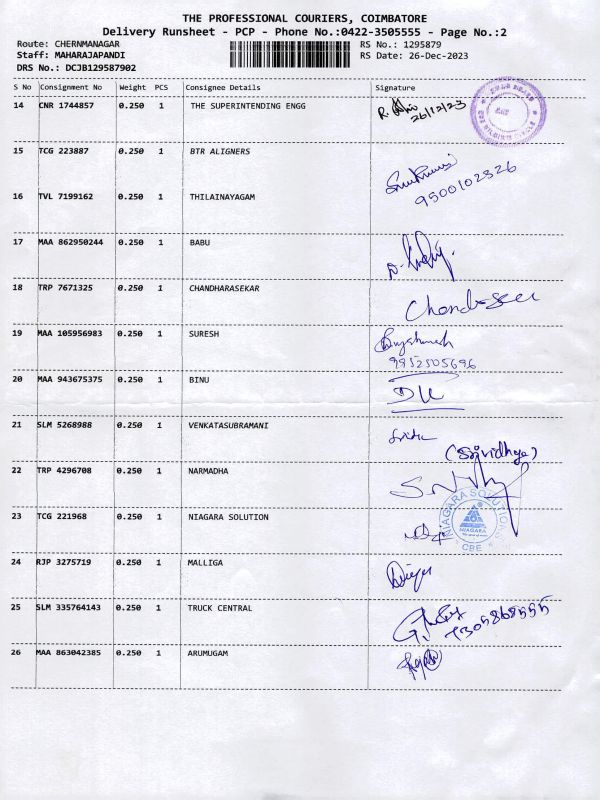 THE PROFESSIONAL COURIERS, COIMBATORE
Delivery Runsheet - PCP - Phone No.:0422-3505555 - Page No.:2
Route: CHERNMANAGAR RS No.: 1295879
Staff: MAHARAJAPANDI RS Date: 26-Dec-2023
DRS No.: DCJB129587902
S No Consignment No Weight PCS Consignee Details Signature
14 CNR 1744857 0.250 1 THE SUPERINTENDING ENGG 26/12/23
15 TCG 223887 0.250 1 BTR ALIGNERS
9500102326
16 TVL 7199162 0.250 1 THILAINAYAGAM
17 MAA 862950244 0.250 1 BABU
18 TRP 7671325 0.250 1 CHANDHARASEKAR
19 MAA 105956983 0.250 1 SURESH
9952505696
20 MAA 943675375 0.250 1 BINU
21 SLM 5268988 0.250 1 VENKATASUBRAMANI
(Srividhya)
22 TRP 4296708 0.250 1 NARMADHA
23 TCG 221968 0.250 1 NIAGARA SOLUTION
NIAGARA SOLUTIONS
NIAGARA
CBE
24 RJP 3275719 0.250 1 MALLIGA
25 SLM 335764143 0.250 1 TRUCK CENTRAL
26 MAA 863042385 0.250 1 ARUMUGAM